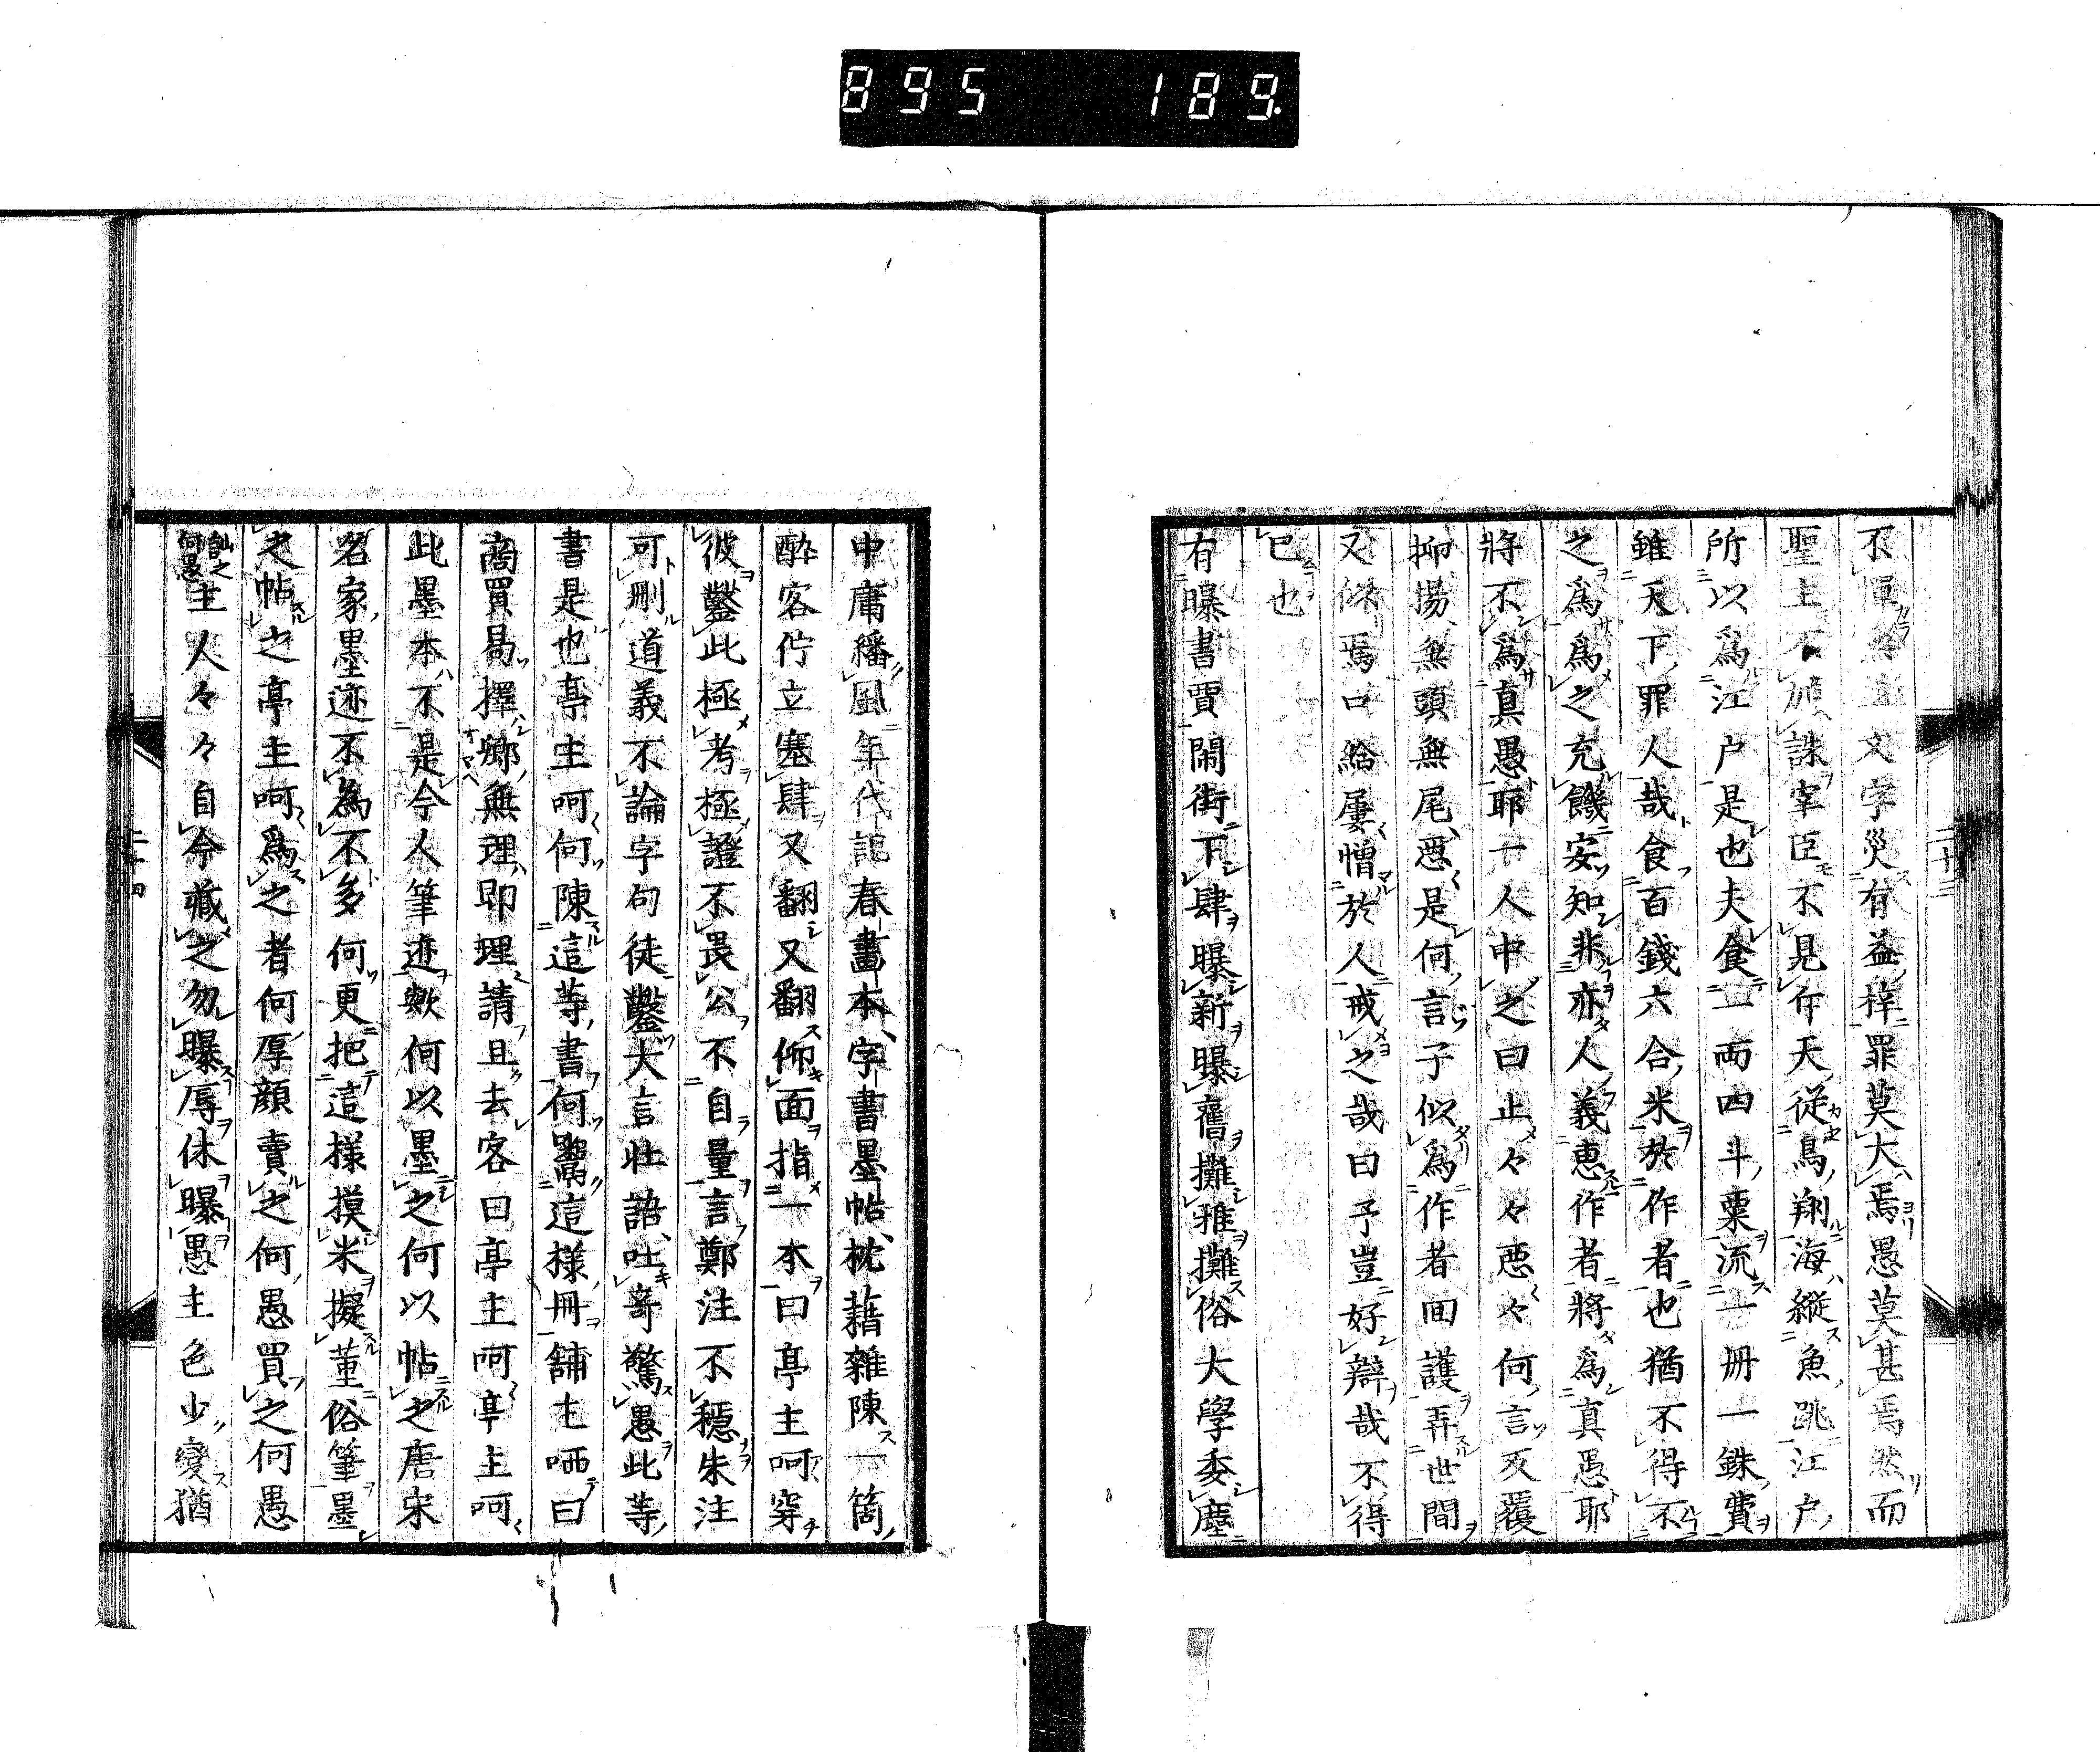 895 189
不文字災有益梓罪莫大焉愚莫甚焉然而
聖主不誅宰臣不見仰天從鳥翔海縱魚跳江戶
所以爲江戶是也夫食一兩四斗粟流一冊一銖費
雖天下罪人哉食百錢六合米於作者也猶不得不
之爲爲之充饑安知非亦人義恵作者將爲真愚耶
將不爲真愚耶一人中之曰止々々悪々何言反覆
抑揚無頭無尾悪是何言子似爲作者回護弄世間
又焉口給屢憎於人戒之哉曰予豈好辯哉不得
已也
有曝書賈閙街下肆曝新曝舊攤雅攤俗大學委塵
中庸繙風年代記春畫本字書墨帖枕藉雜陳一箇
酔客佇立塞肆又翻又翻仰面指一本曰亭主呵穿
彼鑿此極考極證不畏公不自量言鄭注不穩朱注
可刪道義不論字句徒鑿大言壯語吐奇驚愚此等
書是也亭主呵何陳這等書何鬻這樣冊舖主哂曰
商買曷擇郷無理即理請且去客曰亭主呵亭主呵
此墨本不是今人筆迹歟何以墨之何以帖之唐宋
名家墨迹不為不多何更把這様摸米擬董俗筆墨
之帖之亭主呵爲之者何厚顔賣之何愚買之何愚
訕之何愚主人々々自今藏之勿曝辱休曝愚主色少變猶